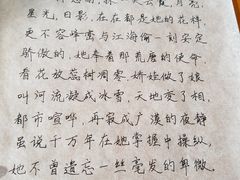 星光，日影，在在都是她的花样，
更不容峰峦与江海偷一刻安定
骄傲的，她奉着那荒唐的使命
看花放蕊树凋零，娇娃做了娘
叫河流凝成冰雪，天地变了相，
都市喧哗，再寂成广漠的夜静
虽说千万年在她掌握中操纵，
她不曾遗忘一丝毫发的卑微